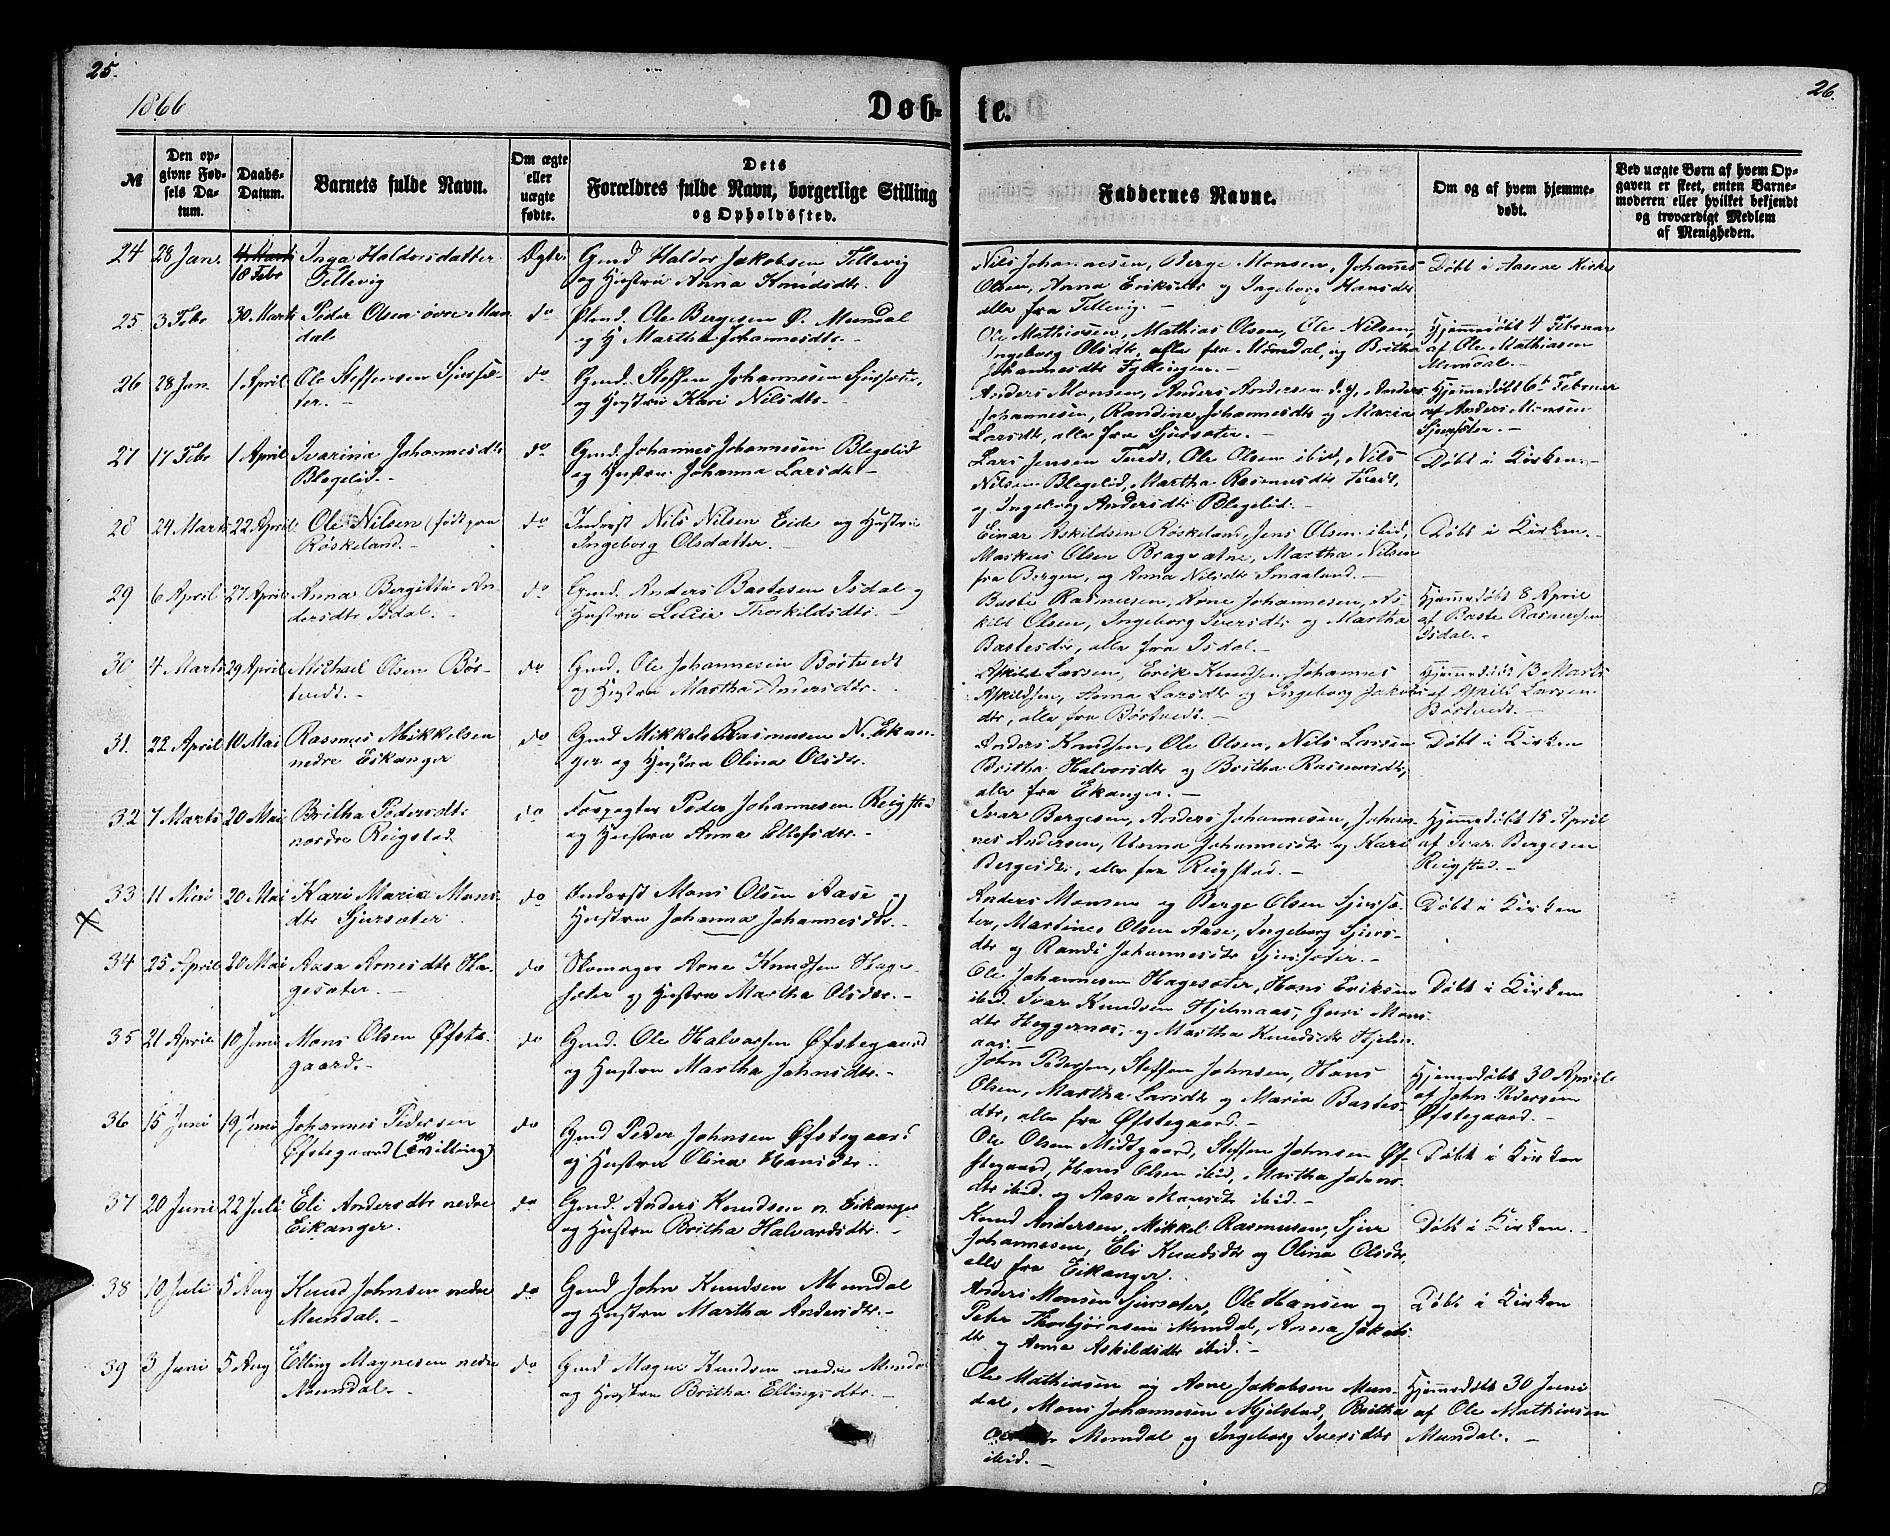 25.
26.
1866
Døb-
te.
№
Den op-
givne Fød-
sels Da-
tum.
Daabs-
Datum.
Barnets fulde Navn.
Om ægte
eller
uægte
fødte.
Dets
Forældres fulde Navn, borgerlige Stilling
og Opholdssted.
Faddernes Navne.
Om og af hvem hjemme-
døbt.
Ved uægte Børn af hvem Op-
gaven er skeet, enten Barne-
moderen eller hvilket bekjendt
og troværdigt Medlem
af Menigheden.
24 28 Jan. 4 Marts
18 Febr
Inga Haldorsdatter
Tellevig
Ægte
Gmd Haldor Jakobsen Tellevig
og Hustru Anna Knudsdtr.
Nils Johannesen, Berge Monsen, Johannes
Olsen, Anna Eriksdtr og Ingeborg Hansdtr
alle fra Tellevig.
Døbt i Aasene Kirke
25 3 Febr 30 Marts Peder Olsen øvre Mun
dal
do
Plmd. Ole Bergesen Ø. Mundal
og H Martha Johannesdtr. -
Ole Mathiasen, Mathias Olsen, Ole Nilsen,
Ingeborg Olsdtr, alle fra Mundal, og Britha
Johannesdtr Fyllingen. -
Hjemmedøbt 4 Februar
af Ole Mathiasen
Mundal. -
26 28 Jan. 1 April Ole Steffensen Sjursæ-
ter. -
do
Gmd. Steffen Johannesen Sjursæter,
og Hustru Kari Nilsdtr. -
Anders Monsen, Anders Andersen d.y., Anders
Johannesen, Randine Johannesdtr og Maria
Larsdtr, alle fra Sjursæter. -
Hjemmedøbt 6t Februar
af Anders Monsen
Sjursæter. -
27 17 Febr 1 April Ivarina Johannesdtr
Blegelid. -
do
Gmd. Johannes Johannesen Blegelid
og Hustru Johanna Larsdtr -
Lars Jensen Tvedt, Ole Olsen ibid, Nils
Nilsen Blegelid, Martha Rasmusdtr Tvedt,
og Ingeborg Andersdtr Blegelid. -
Døbt i Kirken. -
28 24 Marts 22 April Ole Nilsen (født paa
Røskeland. -
do
Inderst Nils Nilsen Eide og Hustru
Ingeborg Olsdatter. -
Einar Askildsen Røskeland, Jens Olsen ibid,
Markus Olsen Bragvatne, Martha Nilsen
fra Bergen, og Anna Nilsdtr Smaaland. -
Døbt i Kirken. -
29 6 April 27 April Anna Bergitte An
dersdtr Isdal. -
do
Gmd. Anders Bastesen Isdal og
Hustru Lucie Thorkildsdtr. -
Baste Rasmusen, Arne Johannesen, As-
kild Olsen, Ingeborg Iversdtr og Martha
Bastesdtr, alle fra Isdal. -
Hjemmedøbt 8 April
af Baste Rasmusen
Isdal. -
30 4 Marts 29 April Michael Olsen Bør-
tvedt. -
do
Gmd. Ole Johannesen Børtvedt
og Hustru Martha Andersdtr. -
Askild Larsen, Erik Knudsen, Johannes
Askildsen, Anna Larsdtr og Ingeborg Jakobs
dtr, alle fra Børtvedt. -
Hjemmedøbt 13 Marts
af Askild Larsen
Børtvedt. -
31. 22 April 10 Mai Rasmus Mikkelsen
nedre Eikanger
do
Gmd Mikkel Rasmusen N. Eikan-
ger og Hustru Olina Olsdtr. -
Anders Knudsen, Ole Olsen, Nils Larsen
Britha Halvorsdtr og Britha Rasmusdtr,
alle fra Eikanger. -
Døbt i Kirken
32 7 Marts 20 Mai Britha Pedersdtr
nordre Reigstad
do
Forpagter Peder Johannesen Reigstad
og Hustru Anna Ellefsdtr. -
Ivar Bergesen, Anders Johannesen, Johan-
nes Andersen, Unna Johannesdtr og Kari
Bergesdtr, alle fra Reigstad. -
Hjemmedøbt 15 April
af Ivar Bergesen
Reigstad. -
33 11 Mai 20 Mai Kari Maria Mons
dtr Sjursæter
do
Inderst Mons Olsen Aase og
Hustru Johanna Johannesdtr. -
Anders Monsen og Berge Olsen Sjursæ-
ter, Martines Olsen Aase, Ingeborg Sjurs-
dtr og Randi Johannesdtr Sjursæter. -
Døbt i Kirken
34 25 April 20 Mai Aasa Arnesdtr Ha-
gesæter. -
do
Skomager Arne Knudsen Hage-
sæter og Hustru Martha Olsdtr. -
Ole Johannesen Hagesæter, Hans Eriksen
ibid. Ivar Knudsen Hjelmaas, Guri Mons
dtr Heggernæs, og Martha Knudsdtr Hjelm-
aas. -
Døbt i Kirken
35 21 April 10 Juni Mons Olsen Øfste-
gaard. -
do
Gmd. Ole Halvorsen Øfstegaard
og Hustru Martha Johnsdtr. -
John Pedersen, Steffen Johnsen, Hans
Olsen, Martha Larsdtr og Maria Bastes-
dtr, alle fra Øfstegaard. -
Hjemmedøbt 30 April
af John Pedersen
Øfstegaard. -
36 15 Juni 19 Juni Johannes Pedersen
Øfstegaard (Tvilling)
do
Gmd Peder Johnsen Øfstegaard
og Hustru Olina Hansdtr.
Ole Olsen Midtgaard, Steffen Johnsen Øf-
stegaard, Hans Olsen ibid, Martha Johns
dtr ibid. og Aasa Monsdtr ibid. -
Døbt i Kirken
37 20 Juni 22 Juli Eli Andersdtr nedre
Eikanger.
do
Gmd. Anders Knudsen n. Eikanger
og Hustru Britha Halvordsdtr. -
Knud Andersen, Mikkel Rasmusen, Sjur
Johannesen, Eli Knudsdtr og Olina Olsdtr,
alle fra Eikanger.
Døbt i Kirken. -
38 10 Juli 5 Aug Knud Johnsen nedre
Mundal. -
do
Gmd John Knudsen Mundal
og Hustru Martha Andersdtr. -
Anders Monsen Sjursæter, Ole Hansen og
Peter Thorbjørnsen Mundal, Anna Jakobs
dtr og Anna Askildsdtr ibid. -
Døbt i Kirken
39 3 Juni 5 Aug Elling Magnesen nedre
Mundal. -
do
Gmd Magne Knudsen nedre Mundal
og Hustru Britha Ellingsdtr. -
Ole Mathiasen og Arne Jakobsen Mun-
dal, Mons Johannesen Mjelstad, Britha
Mundal og Ingeborg Iversdtr
ibid. -
Hjemmedøbt 30 Juni
af Ole Mathiasen
Mundal. -